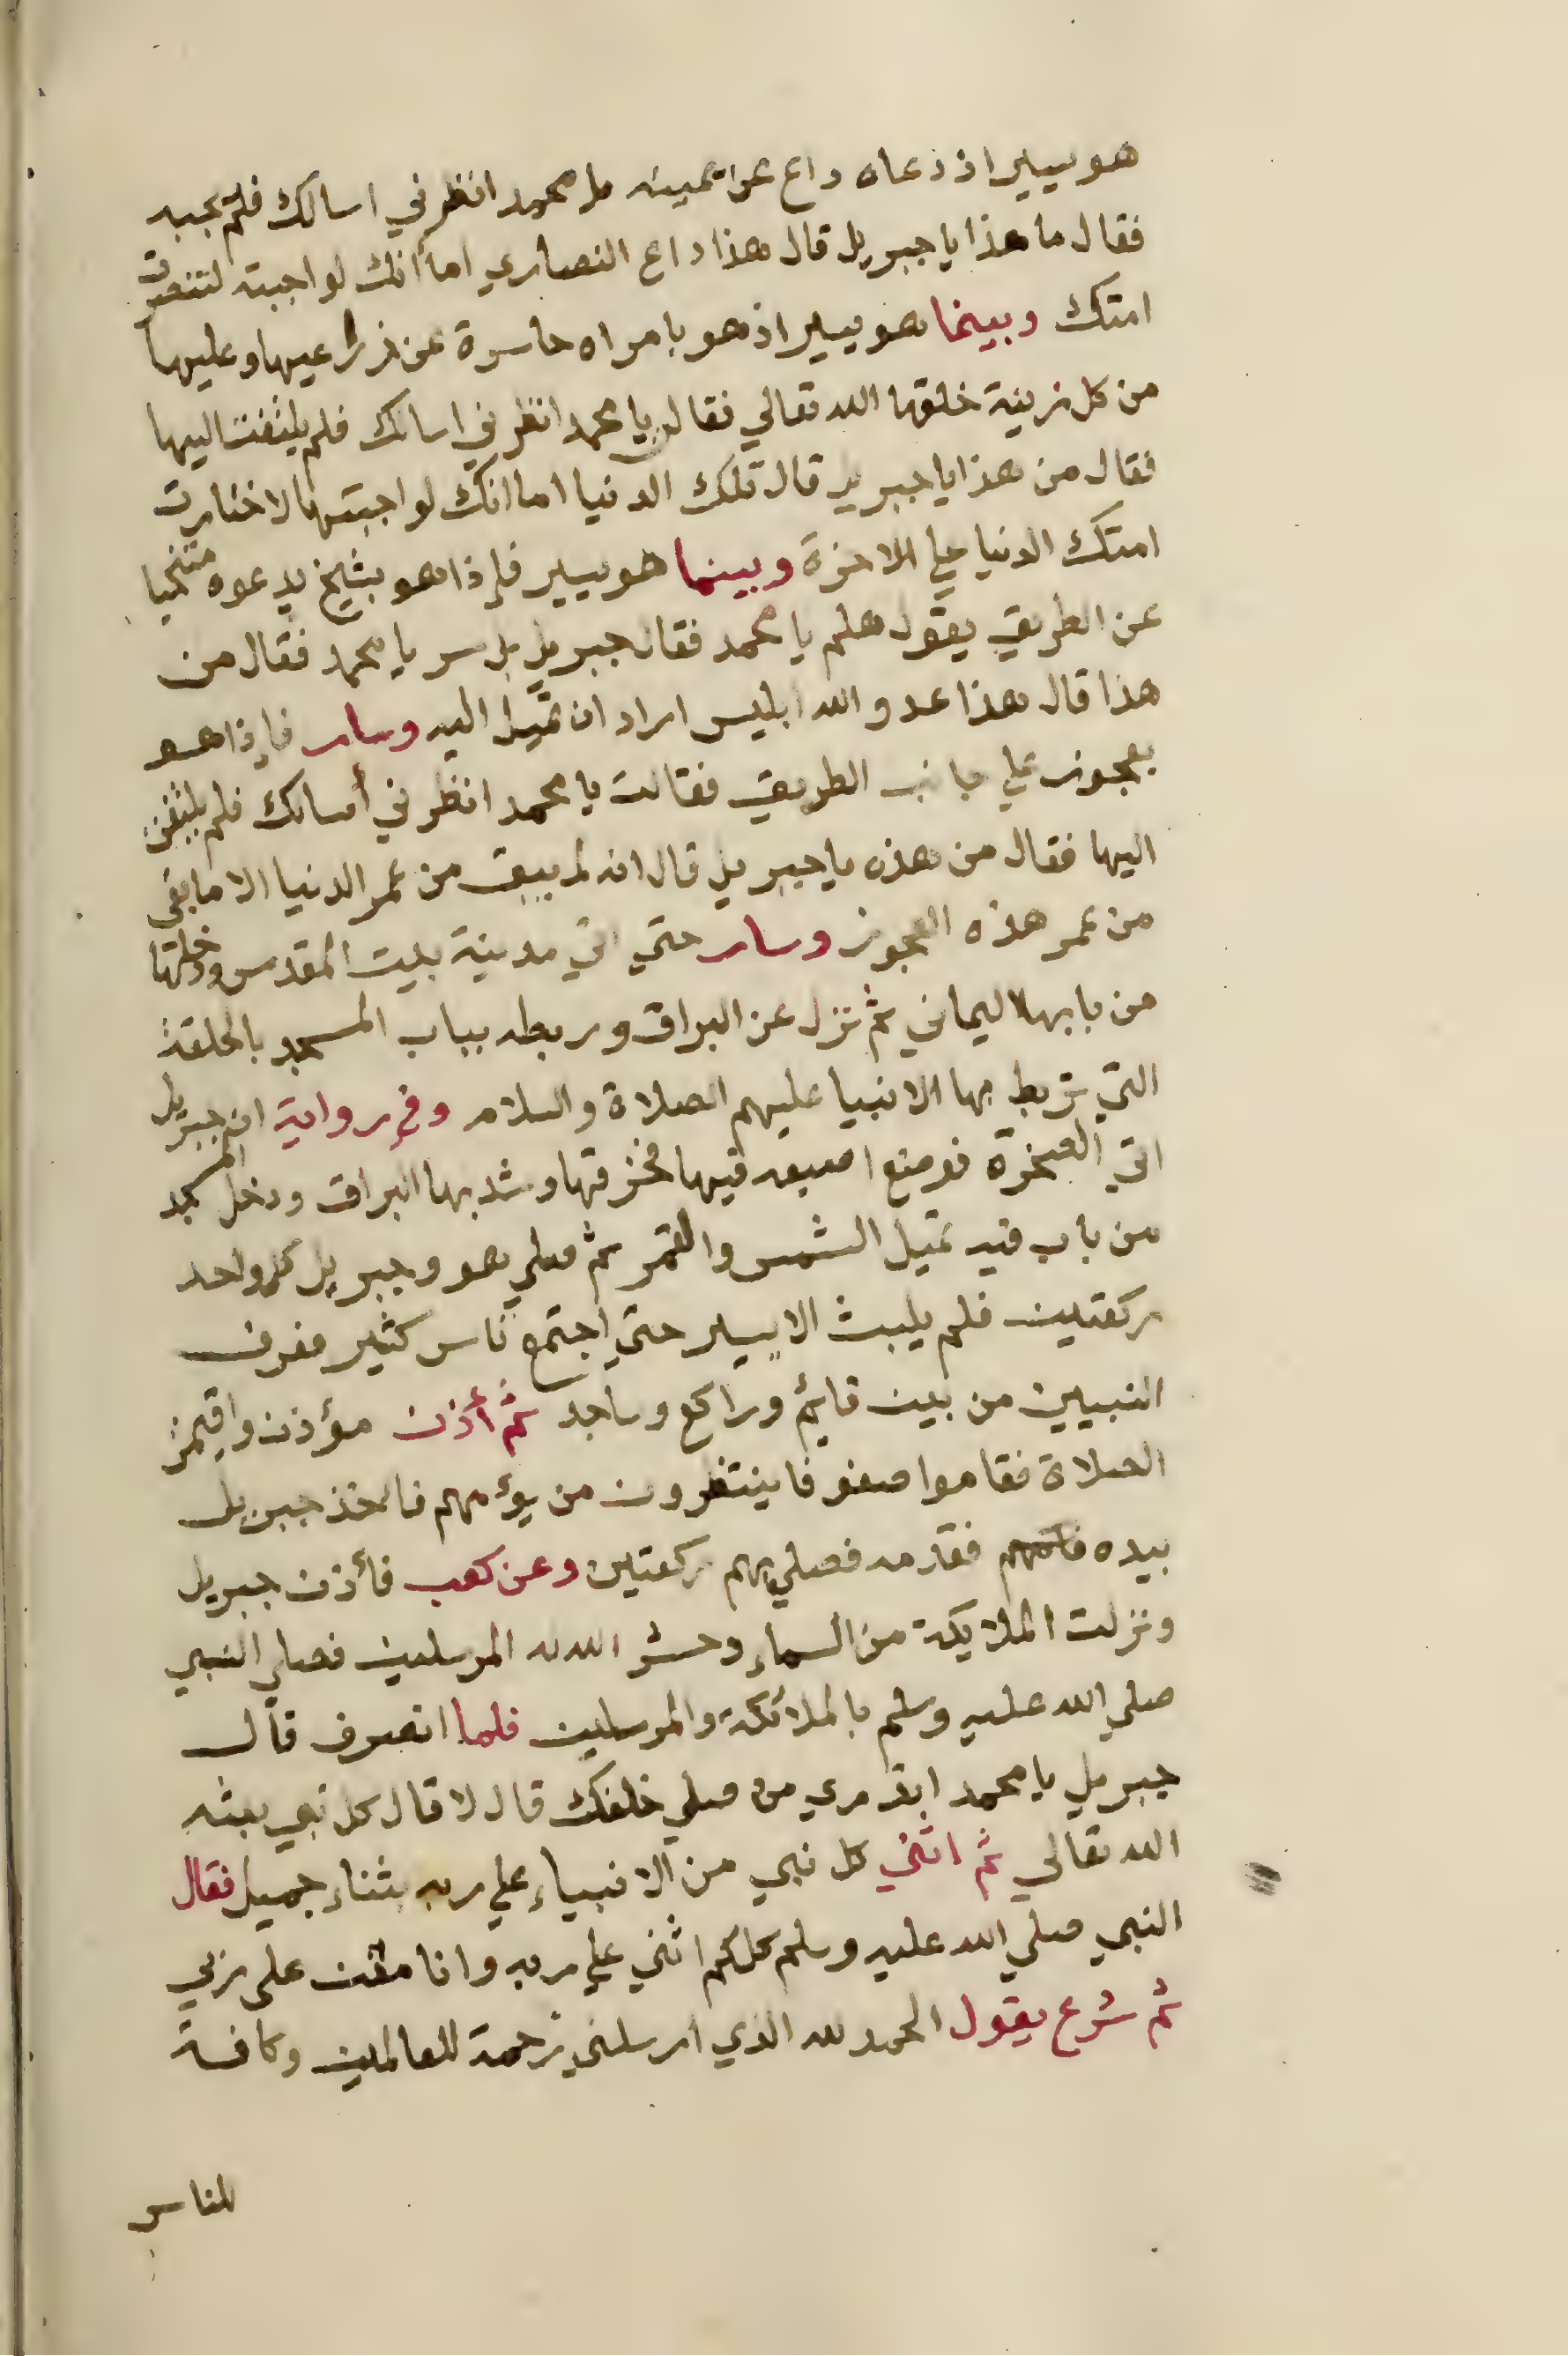 هو يسير اذ دعاه داع عن يمينه يا محمد انظرني اسالك فلم يجبه
فقال ما هذا يا جبريل قال هذا داع النصاري اما أنك لو اجبته لتنصرت
امتك وبينما هو يسير اذ هو بامراه حاسرة عن ذراعيها وعليها
من كل زينة خلقها الله تعالي فقالت يا محمد انظرني اسالك فلم يلتفت اليها
فقال من هذا يا جبريل قال تلك الدنيا اما انك لو اجبتها لاختارت
امتك الدنيا علي الاخرة وبينما هو يسير فإذا هو بشيخ يدعوه متنحيا
عن الطريق يقول هلم يا محمد فقال جبريل بل سر يا محمد فقال من
هذا قال هذا عدو الله ابليس اراد ان تميل اليه وسار فإذا هو
بعجوز علي جانب الطريق فقالت يا محمد انظرني أسالك فلم يلتفت
اليها فقال من هذه يا جبريل قال انه لم يبق من عمر الدنيا الا ما بقي
من عمر هذه العجوز وسار حتي اتي مدينة بيت المقدس ودخلها
من بابها اليماني ثم نزل عن البراق وربطه بباب المسجد بالحلقة
التي تربط بها الانبيا عليهم الصلاة والسلام وفي رواية ان جبريل
اتي الصخرة فوضع اصبعه فيها فخرقها وشد بها البراق ودخل المسجد
من باب فيه تميل الشمس والقمر ثم صلي هو وجبريل كل واحد
ركعتين فلم يلبث الا يسير حتي اجتمع ناس كثير فعرف
النبيين من بين قايم وراكع وساجد ثم أذن مؤذن واقيمت
الصلاة فقاموا صفوفا ينتظرون من يؤمهم فاخذ جبريل
بيده فقدمه فصلي بهم ركعتين وعن كعب فأذن جبريل
ونزلت الملايكة من السماء وحشر الله له المرسلين فصلي النبي
صلي الله عليه وسلم بالملائكة والمرسلين فلما انصرف قال
جبريل يا محمد اتدري من صلي خلفك قال لا قال كل نبي بعثه
الله تعالي ثم اثني كل نبي من الانبياء علي ربه بثناء جميل فقال
النبي صلي الله عليه وسلم كلكم اثني علي ربه وانا مثن علي ربي
ثم شرع يقول الحمد لله الذي ارسلني رحمة للعالمين وكافة
للناس